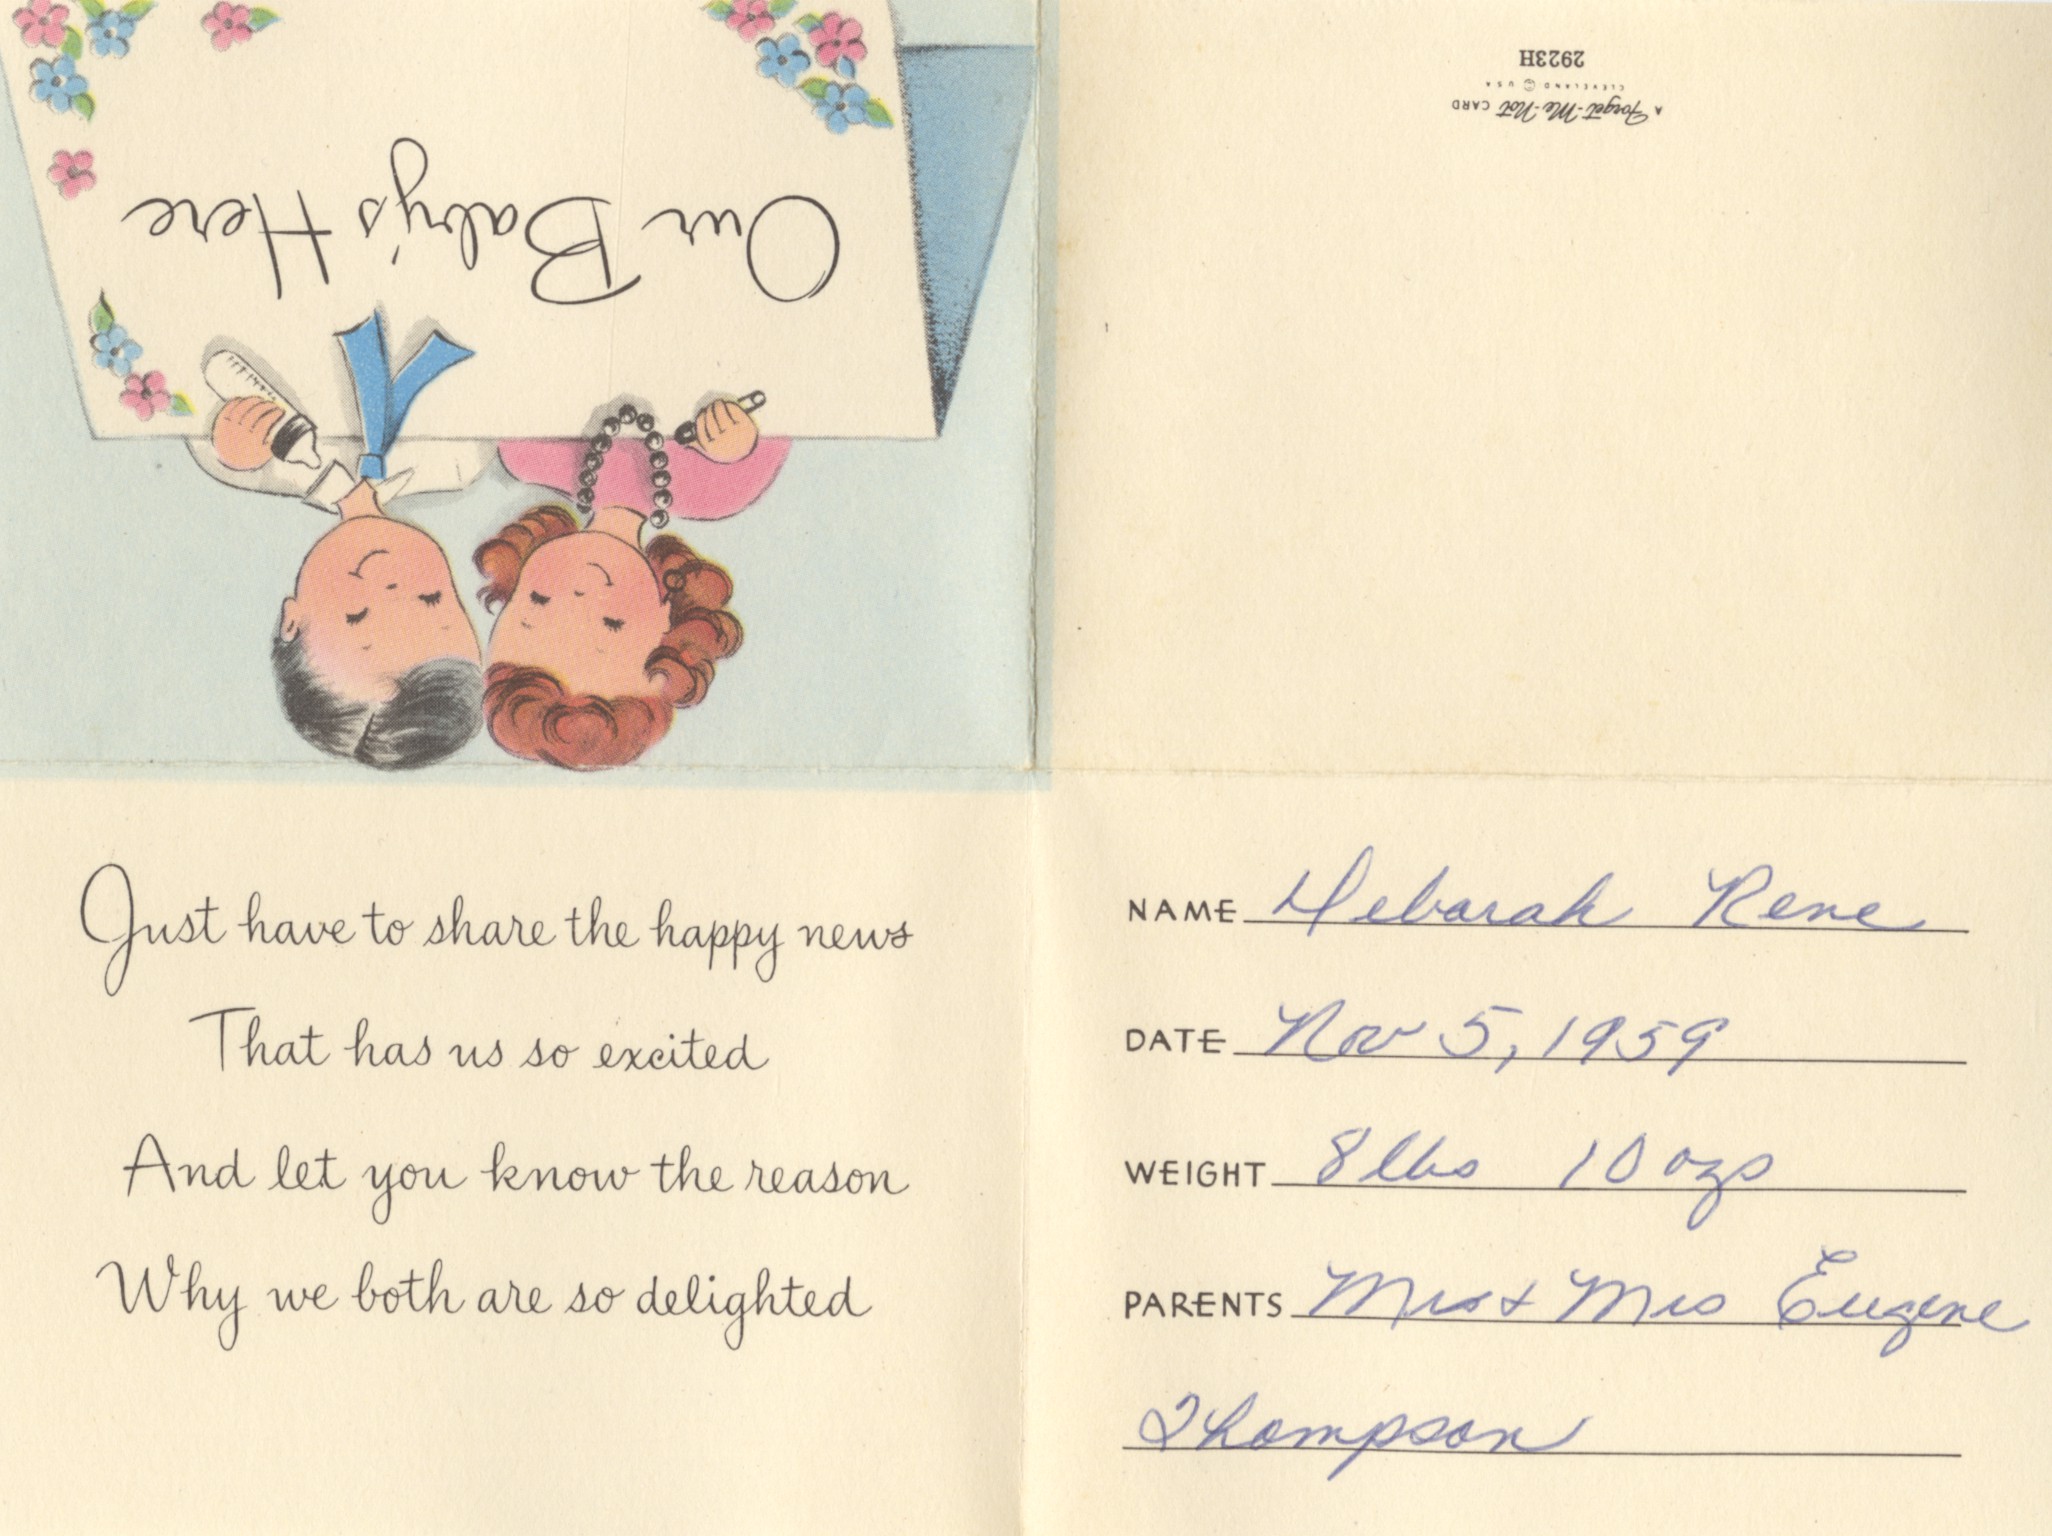 Our Baby's Here
A Forget-Me-Not CARD
CLEVELAND USA
2923H
Just have to share the happy news
That has us so excited
And let you know the reason
Why we both are so delighted
NAME Debarah Rene
DATE Nov 5, 1959
WEIGHT 8 lbs 10 ozs
PARENTS Mrs + Mrs Eugene
Thompson